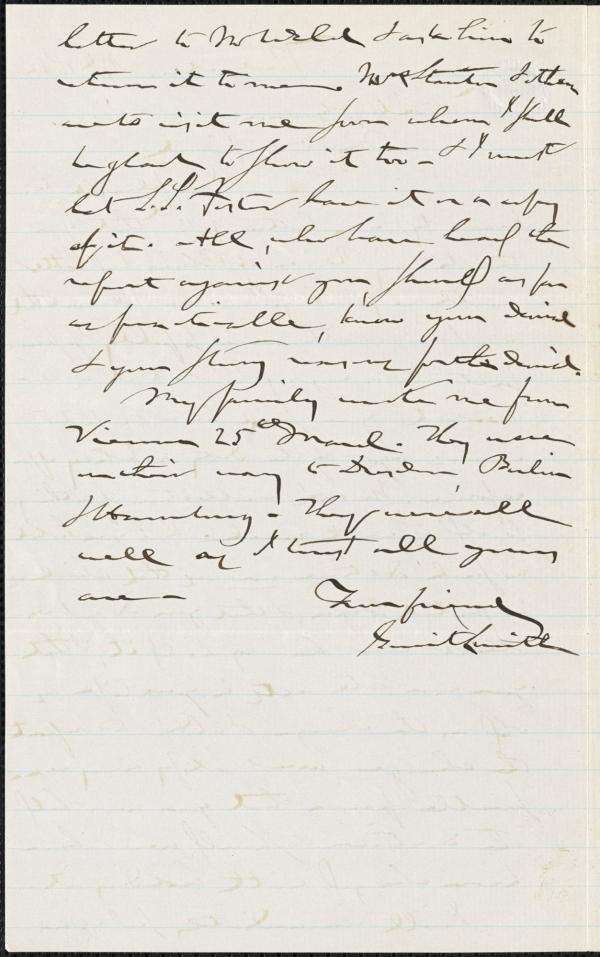 letter to Mr Weld & ask him to
return it to me. Mrs Stanton & others
are to visit me from whom I shall
be glad to show it too - & I must
let S.S. Foster have it or a copy
of it. All, who have heard the
report against you, should as far
as practicable, know your denial
& your strong reasons for the denial.
My family wrote me from
Vienna 25th March. They were
on their way to Dresden, Berlin
& Hamburg - They were all
well as I trust all yours
are -
Your friend
Gerrit Smith